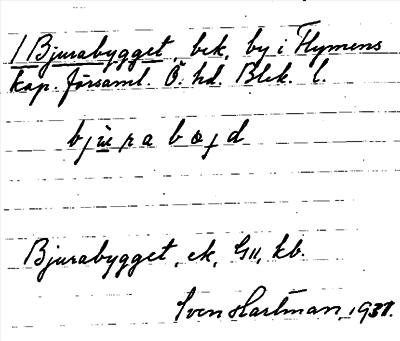 / Bjurabygget, bek, by i Flymens
kap. församl. Ö. hd. Blek. l.
Bjurabygget, ek, G11, kb.
Sven Hartman, 1931.